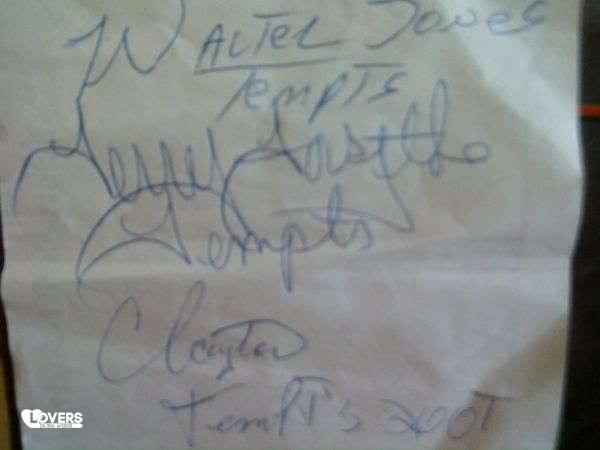 WALTER Jones
Tempts
Terry Forsythe
Tempts
Clayton
TempT's 2007
LOVERS